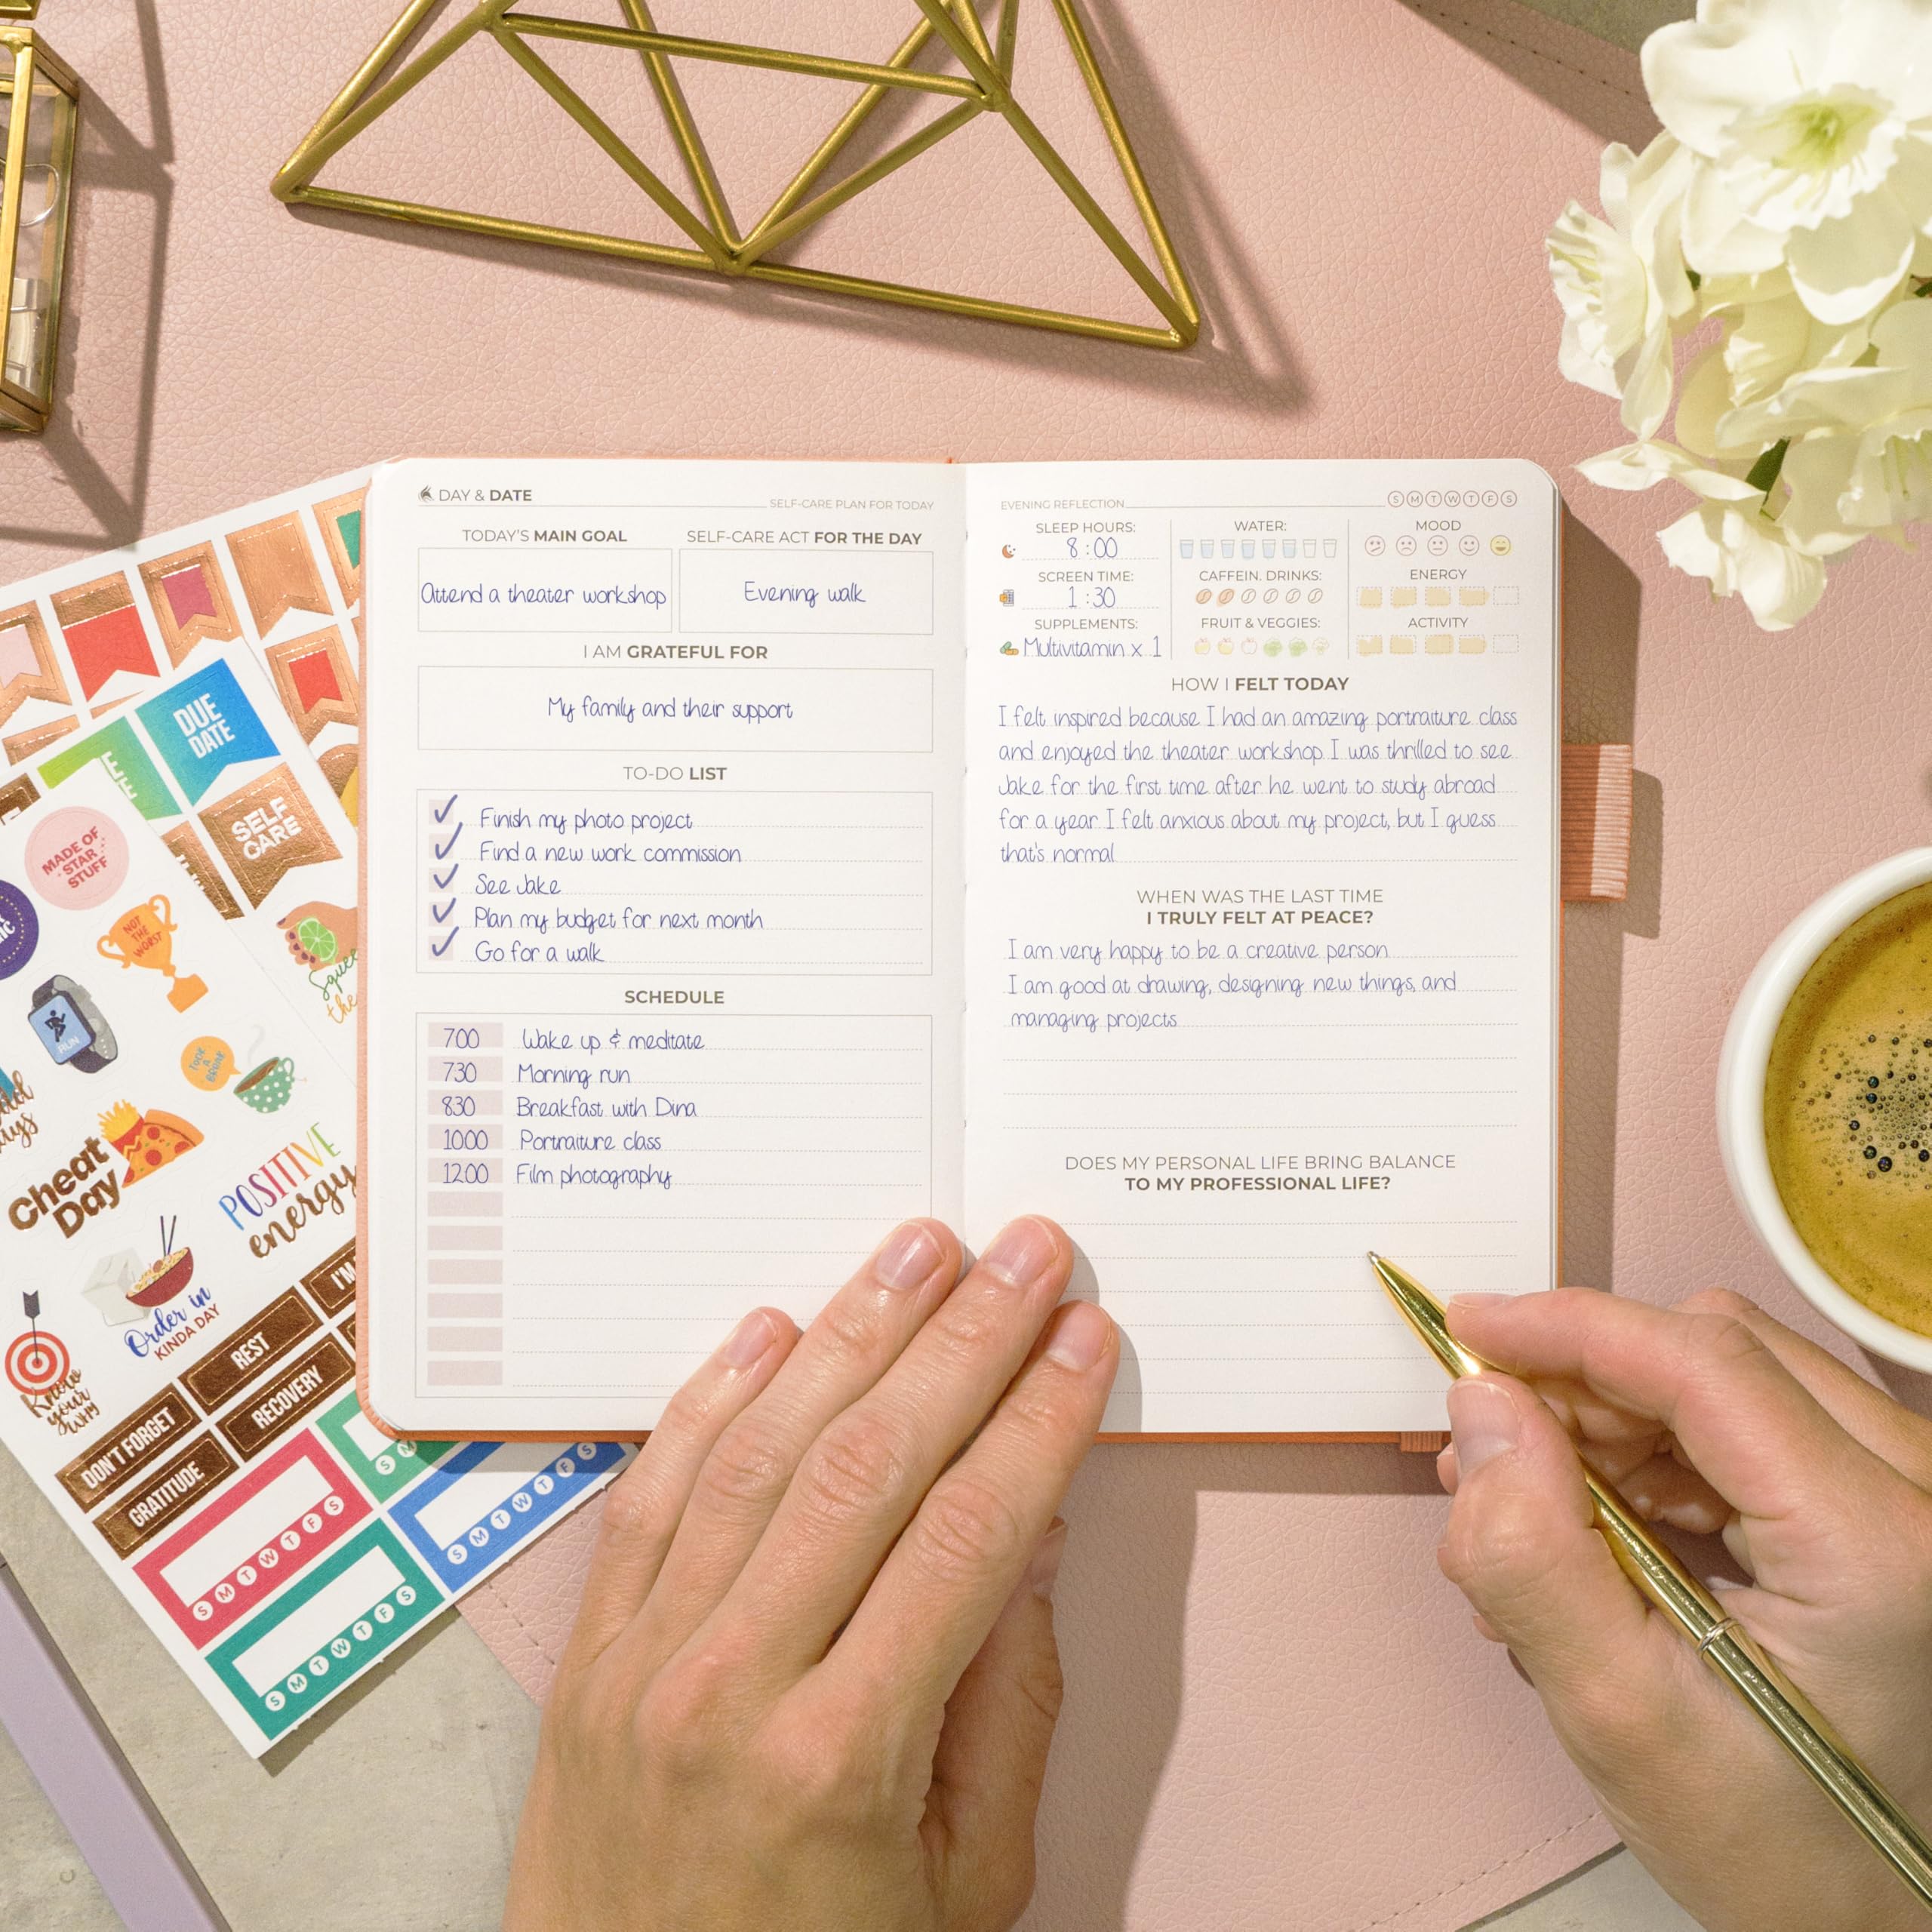 DAY & DATE
SELF-CARE PLAN FOR TODAY
TODAY'S MAIN GOAL
Attend a theater workshop
SELF-CARE ACT FOR THE DAY
Evening walk
I AM GRATEFUL FOR
My family and their support
TO-DO LIST
Finish my photo project
Find a new work commission
See Jake
Plan my budget for next month
Go for a walk
SCHEDULE
7:00 Wake up & meditate
7:30 Morning run
8:30 Breakfast with Dina
10:00 Portraiture class
12:00 Film photography
EVENING REFLECTION
S M T W T F S
SLEEP HOURS:
8:00
SCREEN TIME:
1:30
SUPPLEMENTS:
Multivitamin x 1
WATER:
CAFFEIN. DRINKS:
FRUIT & VEGGIES:
MOOD
ENERGY
ACTIVITY
HOW I FELT TODAY
I felt inspired because I had an amazing portraiture class
and enjoyed the theater workshop. I was thrilled to see
Jake for the first time after he went to study abroad
for a year. I felt anxious about my project, but I guess
that's normal
WHEN WAS THE LAST TIME
I TRULY FELT AT PEACE?
I am very happy to be a creative person
I am good at drawing, designing new things, and
managing projects
DOES MY PERSONAL LIFE BRING BALANCE
TO MY PROFESSIONAL LIFE?
DUE
DATE
SELF
CARE
MADE OF
STAR
STUFF
NOT
THE
WORST
RUN
TAKE
A
BREAK
the
Cheat
Day
POSITIVE
energy
Order in
KINDA DAY
Know
your
WHY
REST
I'M
DON'T FORGET
RECOVERY
GRATITUDE
S M T W T F S
S M
S M T W T F S
S M T W T F S